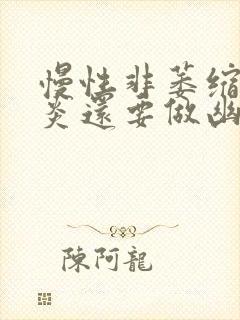 慢性非萎缩
炎還要做幽
陳阿龍